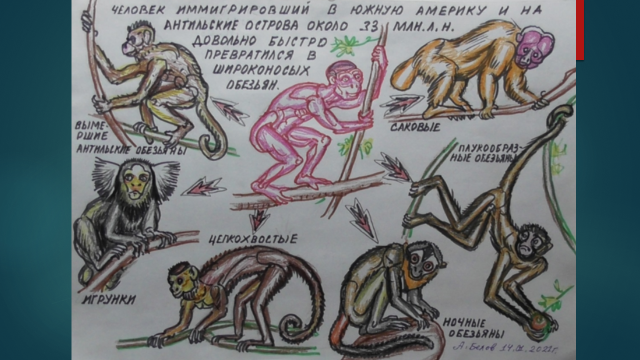 ЧЕЛОВЕК ИММИГРИРОВШИЙ В ЮЖНУЮ АМЕРИКУ И НА
АНТИЛЬСКИЕ ОСТРОВА ОКОЛО 33 МЛН.Л.Н.
ДОВОЛЬНО БЫСТРО
ПРЕВРАТИЛСЯ В
ШИРОКОНОСЫХ
ОБЕЗЬЯН.
ВЫМЕ-
РШИЕ
АНТИЛЬСКИЕ ОБЕЗЬЯНЫ
САКОВЫЕ
ПАУКООБРАЗ-
НЫЕ ОБЕЗЬЯНЫ
ЦЕПКОХВОСТЫЕ
ИГРУНКИ
НОЧНЫЕ
ОБЕЗЬЯНЫ
А. Белов 14. 2021г.